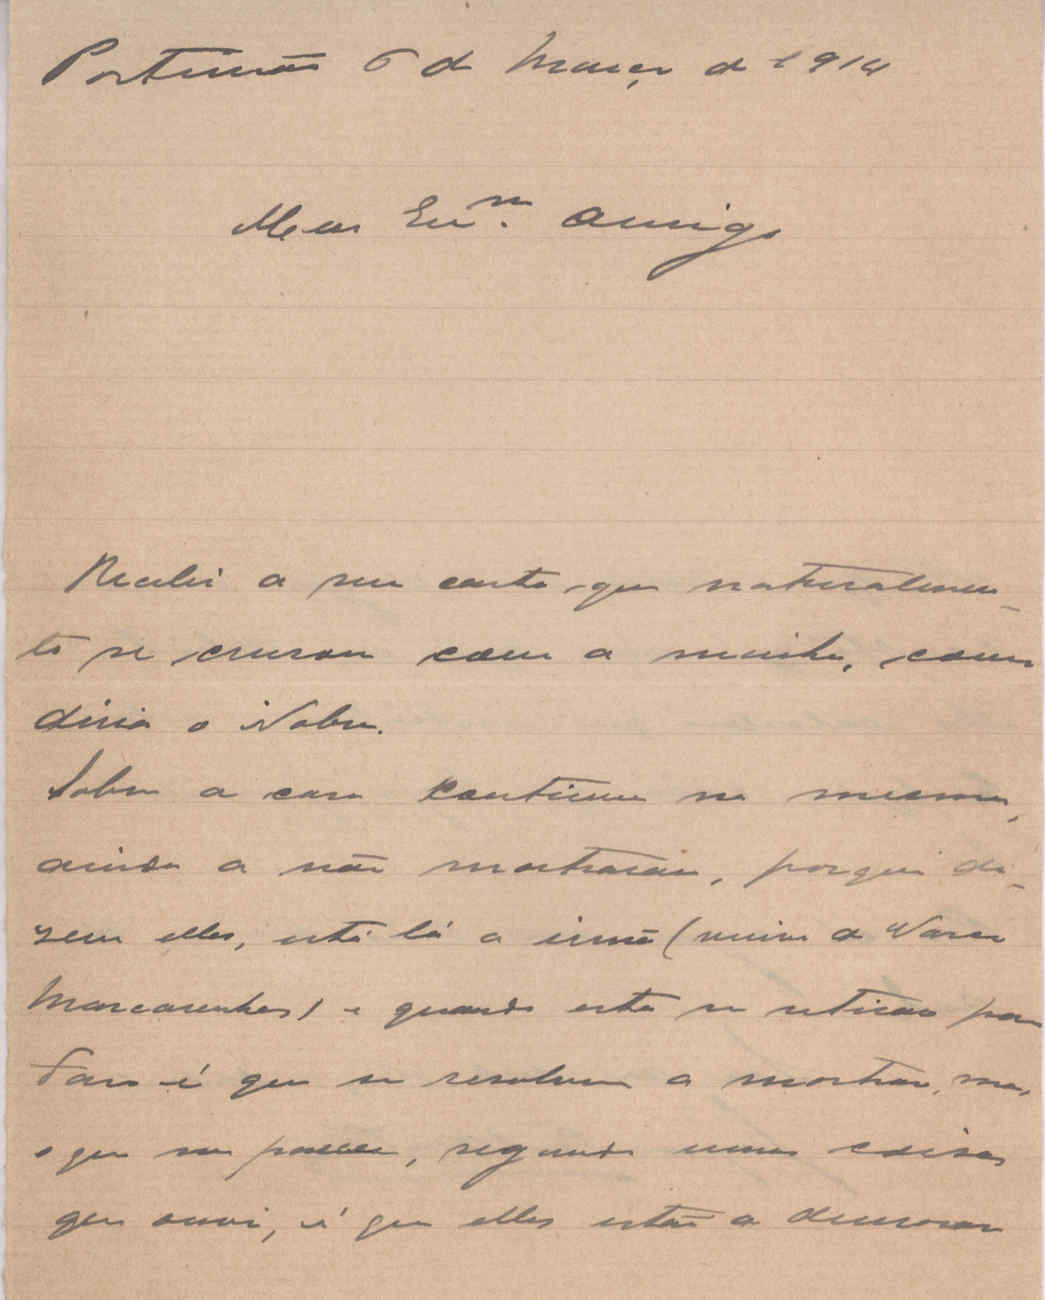 Portimão 6 de Março de 1914
Meu Exm. Amigo
Recebi a sua carta que naturalmen-
te se cruzou com a minha, como
diria o Nobre.
Sobre a casa continua na mesma,
ainda a não mostraram, porque di-
zem elles, está lá a irmã (viuva do
Mascarenhas) e quando esta se retirar para
Faro é que se resolvem a mostrar, mas
o que me parece, segundo umas coisas
que ouvi, é que elles estão a demorar